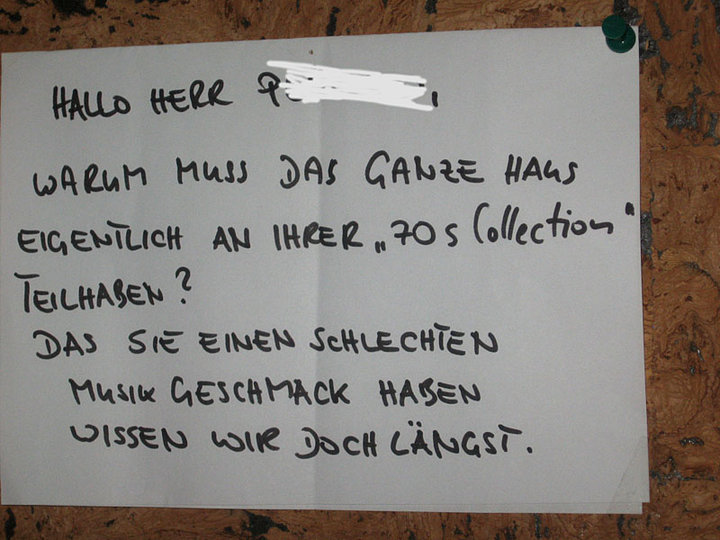 HALLO HERR
WARUM MUSS DAS GANZE HAUS
EIGENTLICH AN IHRER „70s Collection"
TEILHABEN?
DAS SIE EINEN SCHLECHTEN
MUSIK GESCHMACK HABEN
WISSEN WIR DOCH LÄNGST.